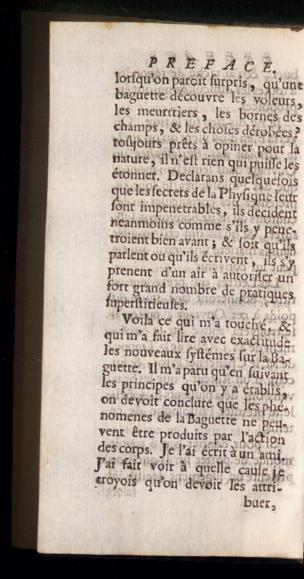 PREFACE.
lorsqu'on paroît surpris, qu'une
baguette découvre les voleurs,
les meurtriers, les bornes des
champs, & les choses dérobées?
toûjours prêts à opiner pour la
nature, il n'est rien qui puisse les
étonner. Declarans quelquefois
que les secrets de la Physique leur
sont impenetrables, ils decident
neanmoins comme s'ils y pene-
troient bien avant; & soit qu'ils
parlent ou qu'ils écrivent, ils s'y
prenent d'un air à autoriser un
fort grand nombre de pratiques
superstitieuses.
Voila ce qui m'a touché, &
qui m'a fait lire avec exactitude
les nouveaux systémes sur la Ba-
guette. Il m'a paru qu'en suivant
les principes qu'on y a établis,
on devoit conclure que les phe-
nomenes de la Baguette ne peu-
vent être produits par l'action
des corps. Je l'ai écrit à un ami.
J'ai fait voir à quelle cause je
croyois qu'on devoit les attri-
buer,